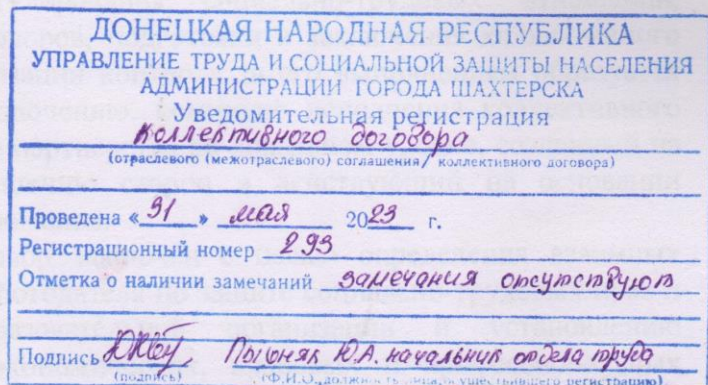 ДОНЕЦКАЯ НАРОДНАЯ РЕСПУБЛИКА
УПРАВЛЕНИЕ ТРУДА И СОЦИАЛЬНОЙ ЗАЩИТЫ НАСЕЛЕНИЯ
АДМИНИСТРАЦИИ ГОРОДА ШАХТЕРСКА
Уведомительная регистрация
коллективного договора
(отраслевого (межотраслевого) соглашения/ коллективного договора)
Проведена «31» мая 2023 г.
Регистрационный номер 293
Отметка о наличии замечаний замечания отсутствуют
Подпись Ю.А. начальник отдела труда
(подпись) (Ф.И.О., должность лица, осуществившего регистрацию)